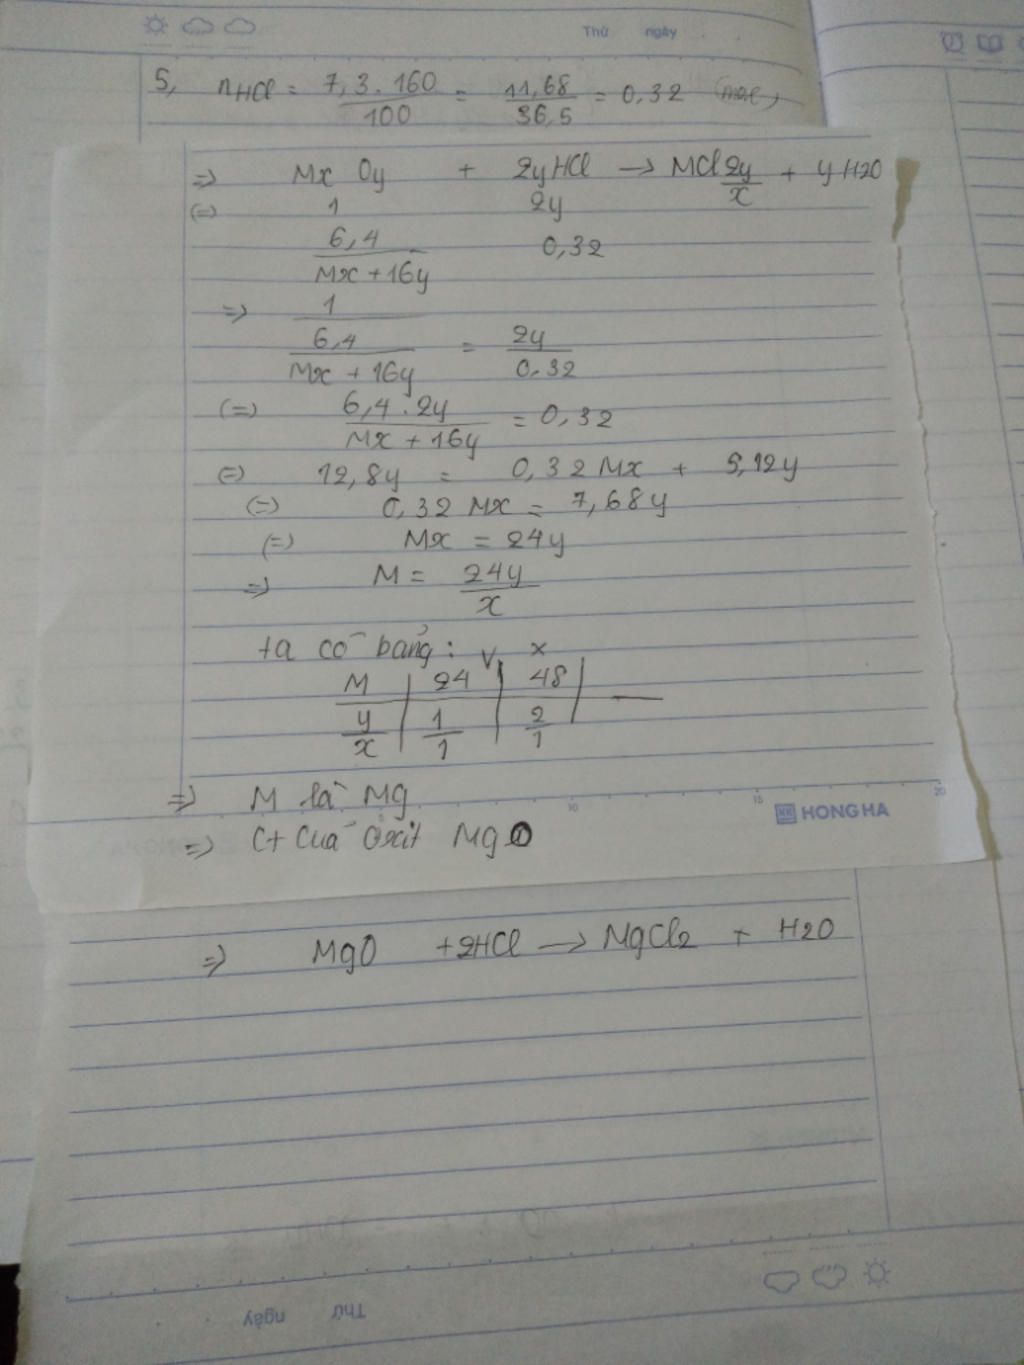 Thứ ngày
5, nHCl = 7,3.160/100 = 11,68/36,5 = 0,32 (mol)
=> MxOy + 2yHCl → MCl2y/x + yH2O
(=) 1 2y
6,4/Mx + 16y 0,32
=> 1/(6,4/Mx + 16y) = 2y/0,32
(=) 6,4.2y/Mx + 16y = 0,32
(=) 12,8y = 0,32Mx + 5,12y
(=) 0,32Mx = 7,68y
(=) Mx = 24y
=> M = 24y/x
ta có bảng: v x
M | 24 | 48 |
y/x | 1/1 | 2/1 | —
=> M là Mg
10 15 20
HONG HA
=> CT Của Oxit MgO
=> MgO + 2HCl → MgCl2 + H2O
Thứ ngày